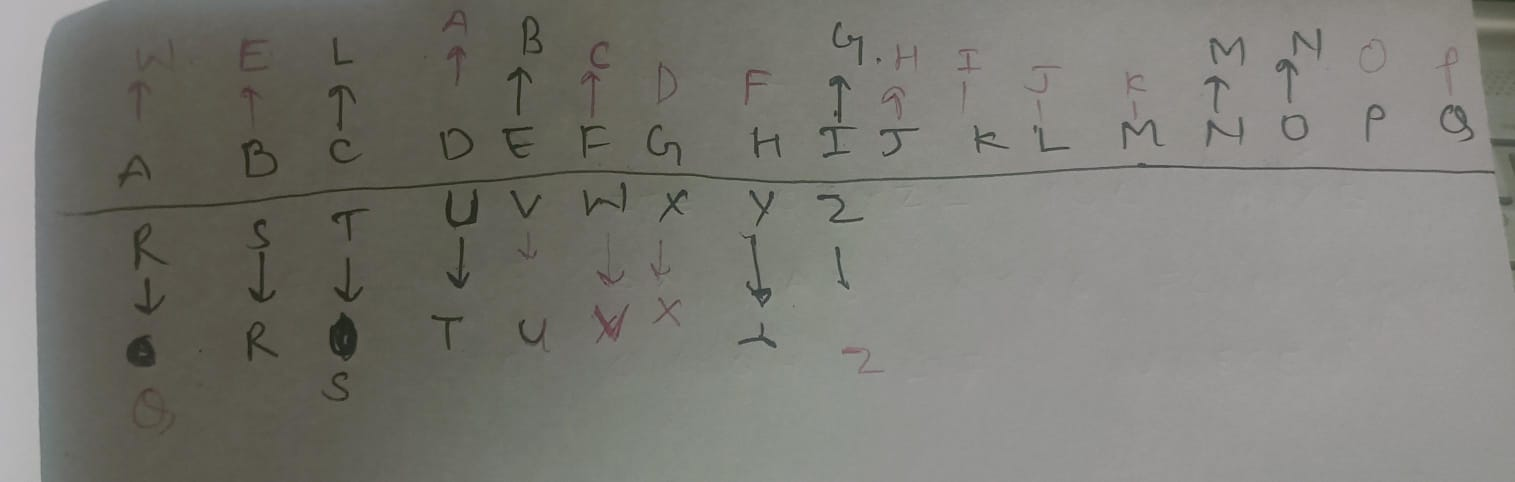 W E L A B C D F G. H I J K M N O P
↑ ↑ ↑ ↑ ↑ ↑ ↑ ↑ ↑ ↑
A B C D E F G H I J K L M N O P Q
R S T U V W X Y Z
↓ ↓ ↓ ↓ ↓ ↓ ↓ ↓ ↓
R T U X Y Z
Q S